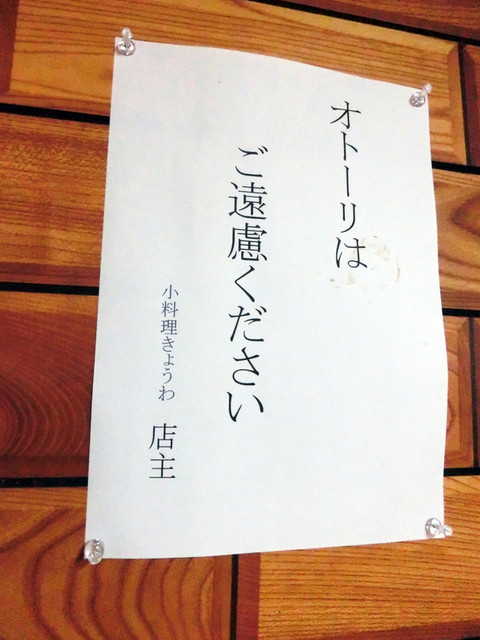 オトーリは
ご遠慮ください
小料理きょうわ 店主